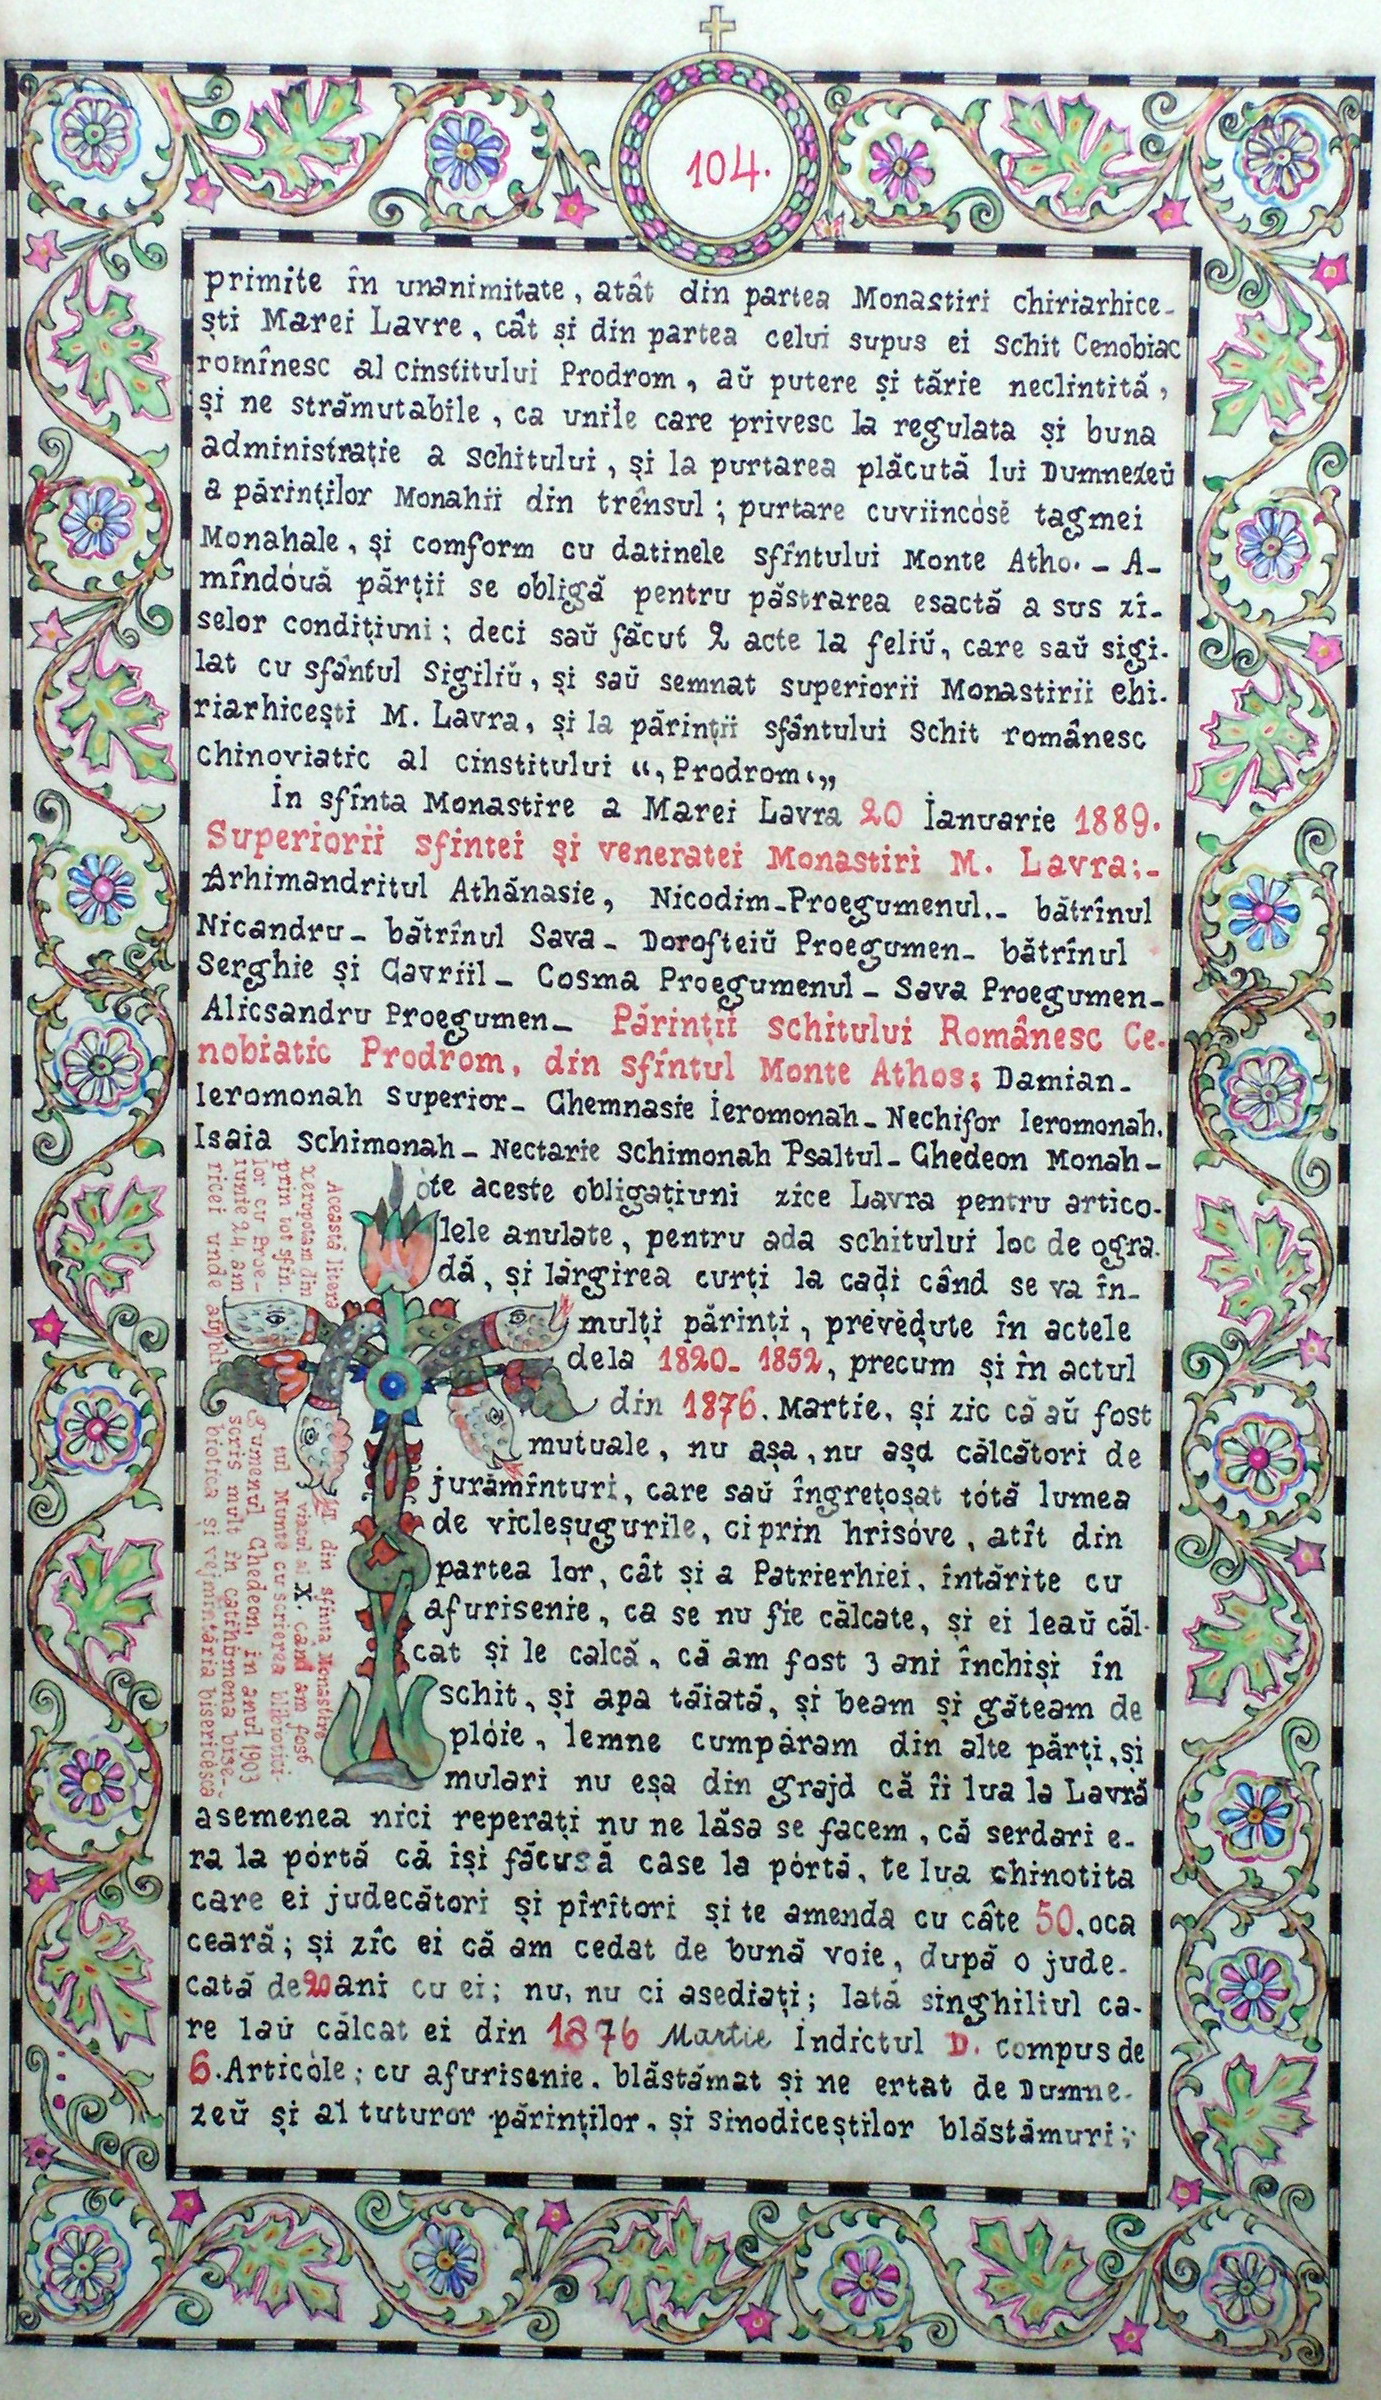 104.
primite în unanimitate, atât din partea Monastiri chiriarhice-
ști Marei Lavre, cât și din partea celui supus ei schit Cenobiac
romînesc al cinstitului Prodrom, aŭ putere și tărie neclintită,
și ne strămutabile, ca unile care privesc la regulata și buna
administrație a schitului, și la purtarea plăcută lui Dumnezeŭ
a părinților Monahii din trênsul; purtare cuviincósĕ tagmei
Monahale, și comform cu datinele sfîntului Monte Atho. - A-
mîndóuă părții se obligă pentru păstrarea esactă a sus zî-
selor condițiuni; deci saŭ făcut 2 acte la feliŭ, care saŭ sigi-
lat cu sfântul Sigiliŭ, și saŭ semnat superiorii Monastirii chi-
riarhicești M. Lavra, și la părinții sfântului Schit românesc
chinoviatic al cinstitului “, Prodrom.„
În sfînta Monastire a Marei Lavra 20 Ianuarie 1889.
Superiorii sfintei și veneratei Monastiri M. Lavra;-
Arhimandritul Athănasie, Nicodim-Proegumenul.- bătrînul
Nicandru- bătrînul Sava- Dorofteiŭ Proegumen- bătrînul
Serghie și Gavriil- Cosma Proegumenul- Sava Proegumen-
Alicsandru Proegumen- Părinții schitului Românesc Ce-
nobiatic Prodrom, din sfîntul Monte Athos; Damian-
Ieromonah Superior- Ghemnasie Ieromonah- Nechifor Ieromonah.
Isaia schimonah- Nectarie schimonah Psaltul- Ghedeon Monah-
óte aceste obligațiuni zice Lavra pentru artico-
lele anulate, pentru ada schitului loc de ogra-
dă, și lărgirea curți la cadi când se va în-
mulți părinți, prevĕdute în actele
dela 1820- 1852, precum și în actul
din 1876. Martie, și zic că aŭ fost
mutuale, nu așa, nu așa călcători de
jurămînturi, care saŭ îngrețoșat tótă lumea
de vicleșugurile, ci prin hrisóve, atît din
partea lor, cât și a Patrierhiei, întărite cu
afurisenie, ca se nu fie călcate, și ei leaŭ căl-
cat și le calcă, că am fost 3 ani închiși în
schit, și apa tăiată, și beam și găteam de
plóie, lemne cumpăram din alte părți, și
mulari nu eșa din grajd că îi lua la Lavră
asemenea nici reperați nu ne lăsa se facem, că serdari e-
ra la pórtă că își făcusă case la pórtă, te lua chinotita
care ei judecători și pîrîtori și te amenda cu câte 50. oca
ceară; și zîc ei că am cedat de bună voie, după o jude-
cată de 20 ani cu ei; nu, nu ci asediați; Iată singhiliul ca-
re laŭ călcat ei din 1876 Martie Indictul D. compus de
6. Articóle; cu afurisenie, blăstămat și ne ertat de Dumne-
zeŭ și al tuturor părinților, și Sinodiceștilor blăstămuri;
Această literă
din sfînta Monastire
Xeropotam din
viacul al X. când am fost
prin tot sfin-
tul Munte cu scrierea
lor cu Proe-
gumenul Ghedeon, în anul 1903
Iunie 24. am
scris mult în cathiomena bise-
ricei unde
biotica și vejmintăria bisericésca